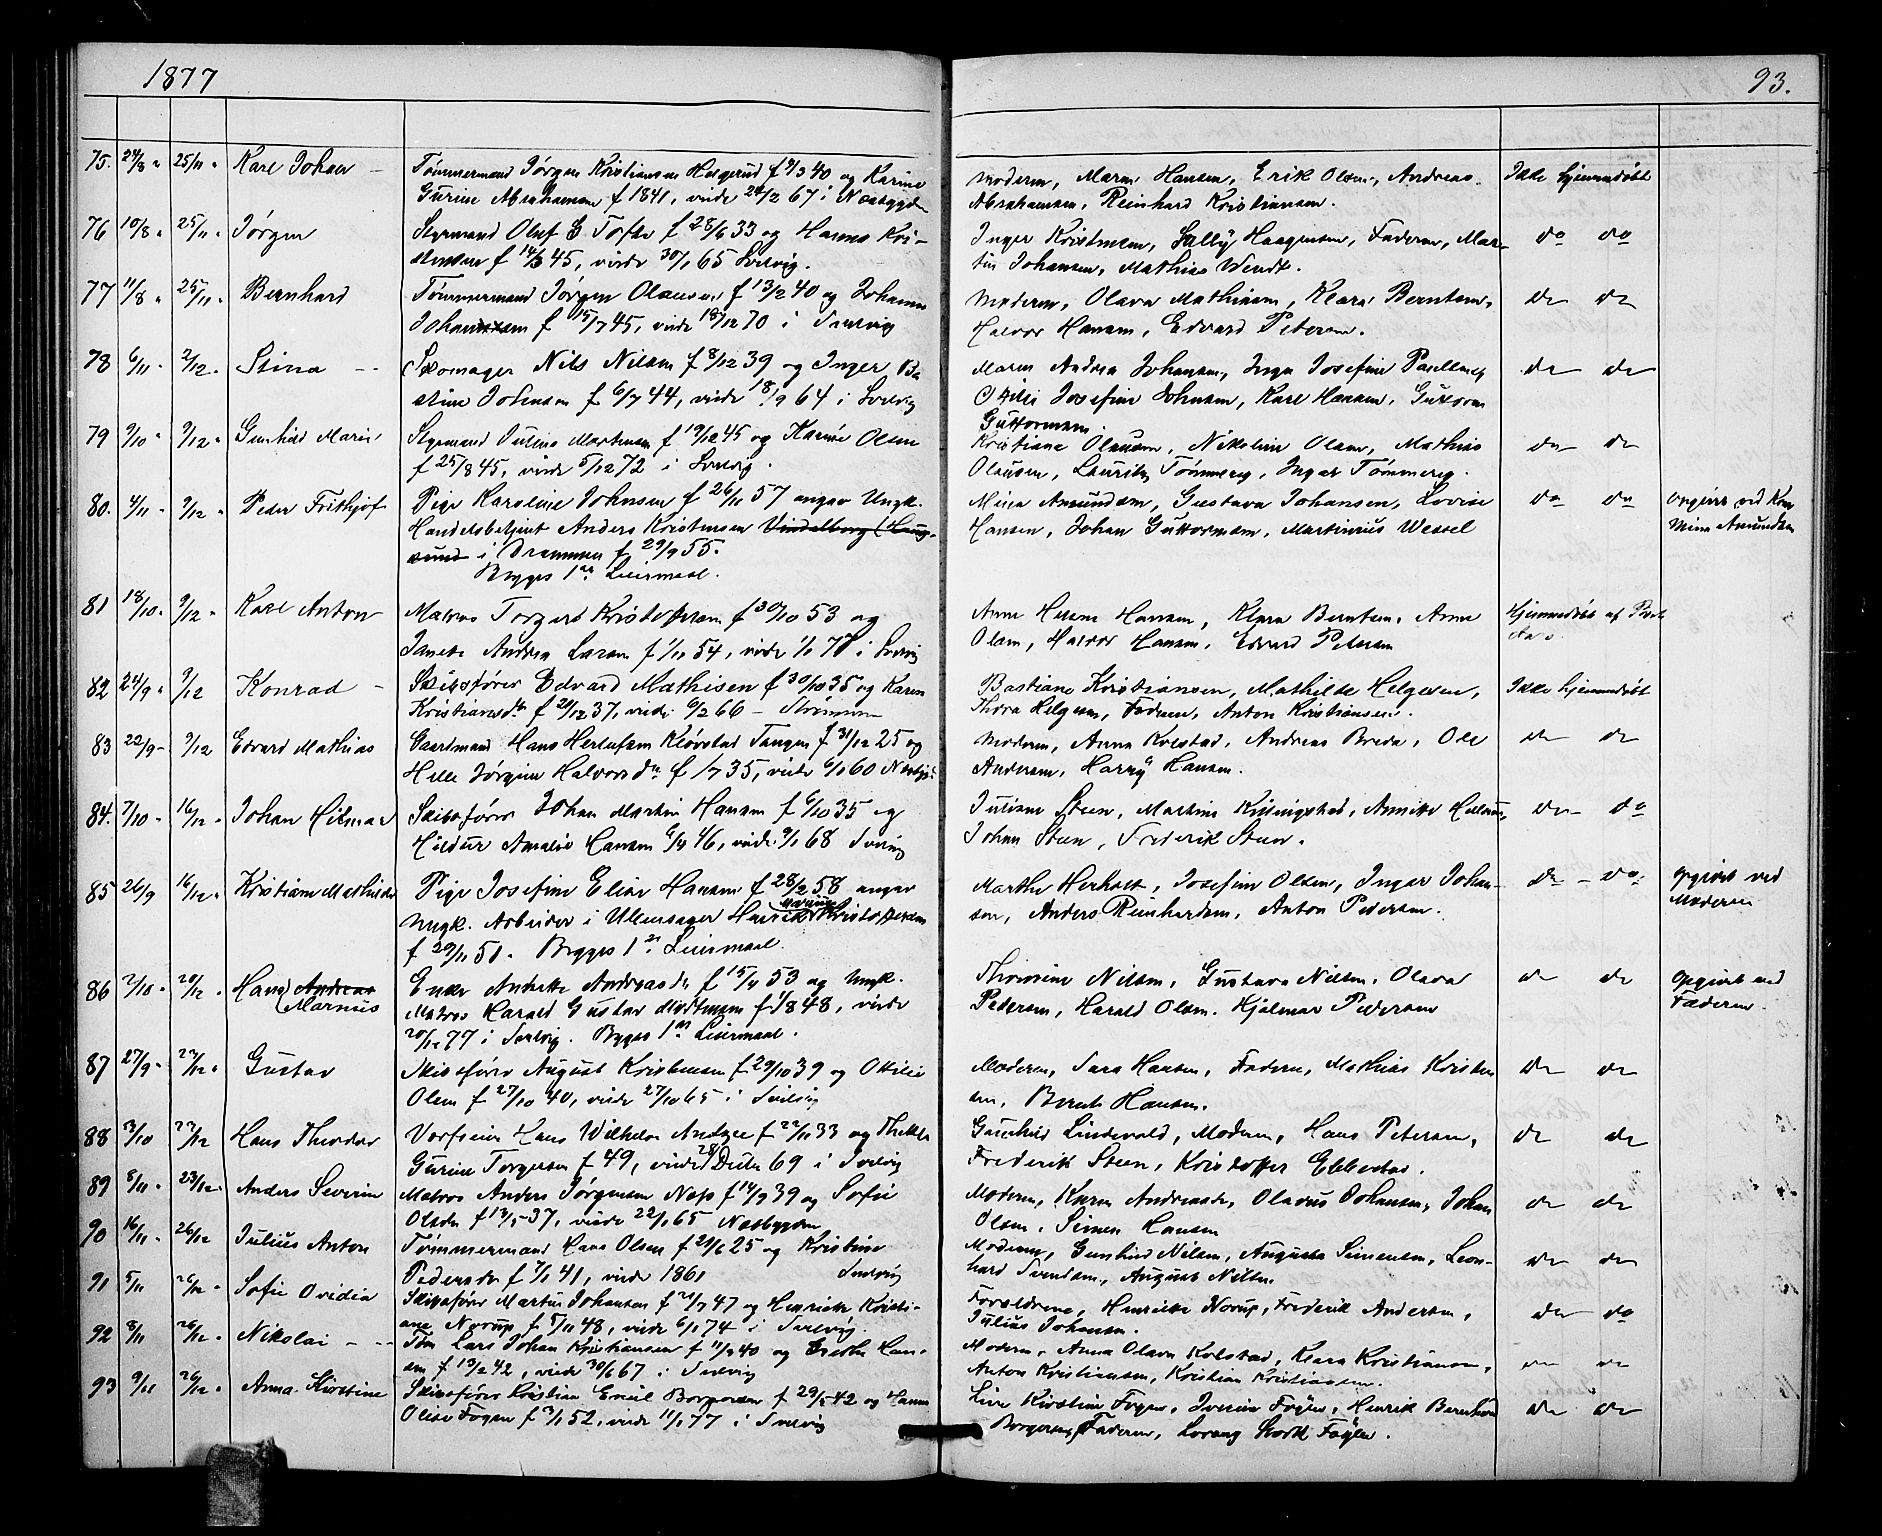 1877
93.
75. 24/8 " 25/11 " Karl Johan — Tømmermand Jørgen Kristiansen Helgerud f 9/3 40 og Karine Moderen, Maren Hansen, Erik Olsen, Andreas Ikke hjemmedøbt
Gurine Abrahamsen f 1841, viede 24/2 67 i Nesbygden Abrahamsen, Reinhard Kristiansen.
76 10/8 " 25/11 " Jørgen Styrmand Oluf E Tofte f 28/6 33 og Hanna Kri- Inger Kristensen, Sally Haagensen, Faderen, Mar- do do
stensen f 14/3 45, viede 30/1 65 Svelvig. tin Johansen, Mathias Wendt.
77 11/8 " 25/11 " Bernhard Tømmermand Jørgen Olausen f 13/2 40 og Johanne Moderen, Olava Mathisen, Klara Berntsen, do do
f 15/7 45, viede 18/12 70 i Svelvig Halvor Hansen, Edvard Petersen.
78 6/11 - 2/12 - Stina -- Skomager Nils Nilsen f 8/12 39 og Inger Maren Andrea Johansen, Inga Josefine do do
stine Johnsen f 6/7 44, viede 18/9 64 i Svelvig Josefine Johnsen, Karl Hansen, Guttorm
Guttormsen.
79 9/10 " 9/12 " Gunhild Marie Styrmand Julius Mortensen f 19/12 45 og Karine Olsen Kristiane Olausen, Nikoline Olsen, Mathias do do
f 25/8 45, viede 5/12 72 i Svelvig. Olausen, Lauritz Tømmerig, Ingar Tømmerig.
80. 4/11 - 9/12 - Peder Frithjof Pige Karoline Johnsen f 26/11 57 angav Ungk. Mina Amundsen, Gustava Johansen, Lovise do do opgivet ved Kone
Handelsbetjent Anders Kristensen Vindelborg (Haug- Hansen, Johan Guttormsen, Martinius Wessel Mina Amundsen
sund i Drammen f 29/9 55.
Begges 1ste Leiermaal.
81 18/10 " 9/12 " Karl Anton Matros Torgers Kristoffersen f 30/10 53 og Anne Helene Hansen, Klara Berntsen, Anne Hjemmedøbt af
Janette Andrea Larsen f 1/11 54, viede 1/1 77 i Svelvig Olsen, Halvor Hansen, Edvard Petersen
82 24/9 " 9/12 Konrad - Skibsfører Edvard Mathisen f 30/10 35 og Karen Bastiane Kristiansen, Mathilde Helgesen, Ikke hjemmedøbt
Kristiansdtr f 20/12 37, viede 6/2 66 — Strømmen Thora Helgesen, Faderen, Anton Kristiansen.
83 22/9 - 9/12 Edvard Mathias Gaardmand Hans Herlufsen Kløvstad Tangen f 31/12 25 og Moderen, Anna Kolstad, Andreas Breda, Ole do do
Helle Jørgine Halvorsdtr f 1/7 35, viede 6/1 60 Andersen, Harry Hansen.
84. 7/10 - 16/12 - Johan Hilmar Skibsfører Johan Martin Hansen f 6/10 35 og Juliane Steen, Martine Killingstad, Annette do do
Hildur Amalie Hansen 6/4 46, viede 9/1 68 Svelvig Johan Steen, Frederik Steen.
85 26/9 16/12 " Kristiane Mathilde Pige Josefine Eline Hansen f 28/2 58 angav Marthe Herholt, Josefine Olsen, Inger Johan- do - do opgivet ved
Ungk. Arbeider i Ullensager Kristoffersen sen, Anders Reinhardsen, Anton Pedersen. Moderen
f 29/11 51. Begges 1ste Leiermaal.
86 2/10 - 20/12 - Hans Andreas Enke Andrette Andreasdtr f 15/4 53 og Ungk. Thorvine Nilsen, Gustava Nilsen, Olava do do opgivet ved
Marnius Matros Harald Gustav Mortensen f 1/8 48, viede Pedersen, Harald Olsen, Hjalmar Pedersen Faderen.
20/12 77 i Svelvig. Begges 1ste Leiermaal.
87 27/9 - 23/12 " Gustav Skibsfører August Kristensen f 29/10 39 og Ottilie Moderen, Sara Hansen, Faderen, Mathias Kristen do do
Olsen f 27/10 40, viede 27/10 65 i Svelvig sen, Bernt Hansen.
88 3/10 23/12 Hans Theodor Hans Wilhelm f 22/11 33 og Thekla Gunhild Lindevold, Moderen, Hans Petersen, do do
Gurine Torgersen f 49, viede 69 i Svelvig Frederik Steen, Kristoffer Ebbestad.
89 8/11 - 23/12 - Anders Severin Matros Anders Jørgensen Næs f 14/9 39 og Sofie Moderen, Karen Andreasdtr, Olavus Johansen, Johan do do
Olsdtr f 13/5 37, viede 22/1 65 Nesbygden Olsen, Simen Hansen
90 16/11 - 26/12 Julius Anton Tømmermand Hans Olsen f 21/6 25 og Kristine Moderen, Gunhild Nilsen, Augusta Simensen, Leon- do do
Pedersdtr f 7/1 41, viede 1861 Svelvig hard Svendsen, August Nilsen
91 5/11 26/12 - Sofie Ovidia Skibsfører Martin Johansen f 21/7 47 og Henriette Kristi- Forældrene, Henriette Norup, Frederik Andersen, do do
ane Norup f 5/11 48, viede 6/1 74 i Svelvig. Julius Johansen.
92 8/11 26/12 - Nikolai - -- Tøm Lars Johan Kristiansen f 11/2 40 og Grethe Han- Moderen, Anna Olava Kolstad, Klara Kristiansen, do do
sen f 13/2 42, viede 30/6 67 i Svelvig Anton Kristiansen, Kristian Kristiansen.
93 9/11 26/12 " Anna Kirstine Skibsfører Kristian Emil Borgersen f 29/5 42 og Hanna Live Kirstine Fogen, Iverine Fogen, Henrik Bernhard do do
Olise Fogen f 3/1 52, viede 11/1 77 i Svelvig Borgersen, Faderen, Lorang Fogen.